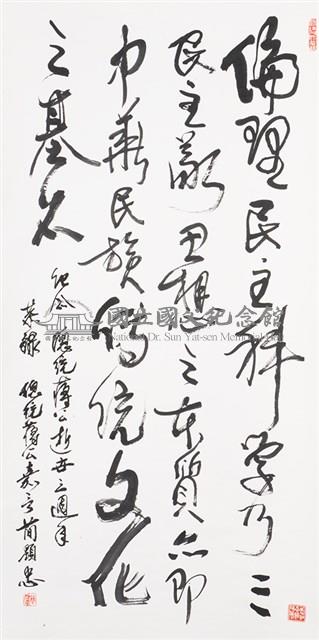 倫理民主科學乃三
民主義思想之本質亦即
中華民族傳統文化
之基石
紀念 總統蔣公逝世三週年
恭錄 總統蔣公嘉言
國立國父紀念館
National Dr. Sun Yat-sen Memorial Hall